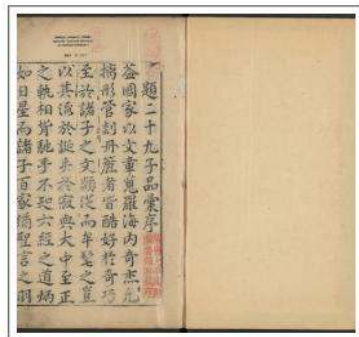 題二十九子品彙序
蓋國家以文章蒐羅海內奇杰凡
摛形管刻丹蔗者皆酷好於奇巧
至於諸子之文顧從而牟髦之豈
以其淪於誕求於寂與大中至正
之軌相背馳乎不知六經之道炳
如日星而諸子百家猶聖言之羽